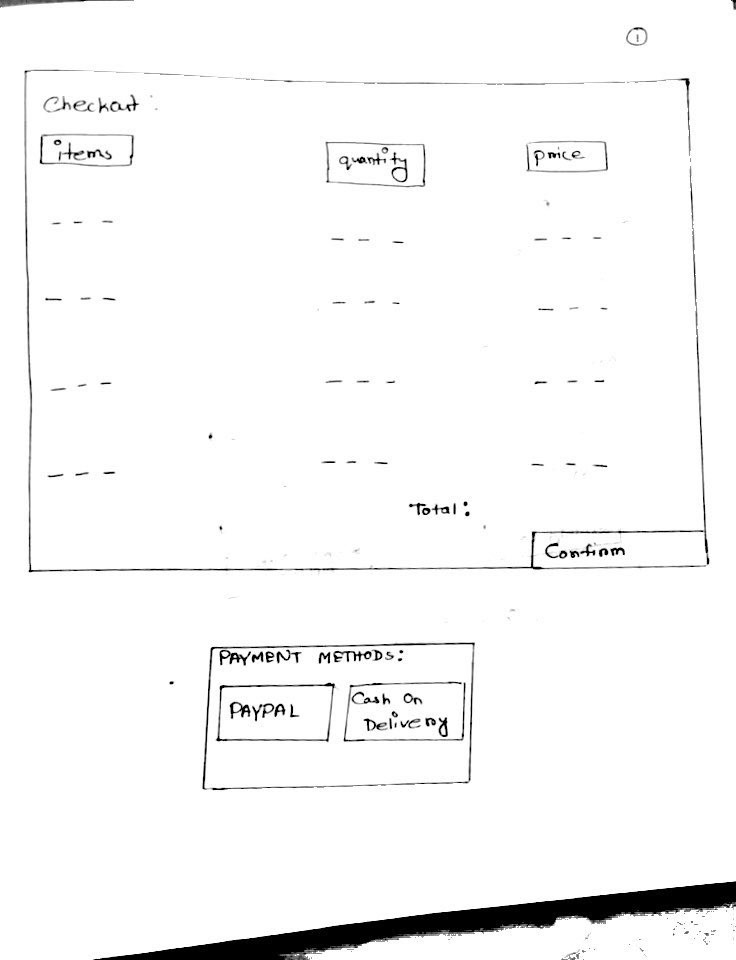 1
Checkout :
items quantity price
Total:
Confirm
PAYMENT METHODS:
PAYPAL
Cash On
Delivery